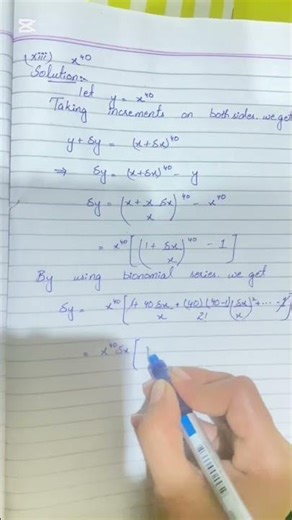 (xiii) x⁴⁰
Solution:-
let y = x⁴⁰
Taking increments on both sides. we get
y + δy = (x+δx)⁴⁰
⇒ δy = (x+δx)⁴⁰ - y
δy = (x + x δx/x)⁴⁰ - x⁴⁰
= x⁴⁰[(1 + δx/x)⁴⁰ - 1]
By using bionomial series. we get
δy = x⁴⁰[1 + 40 δx/x + (40)(40-1)/2! (δx/x)² + ... - 1]
= x⁴⁰ δx [